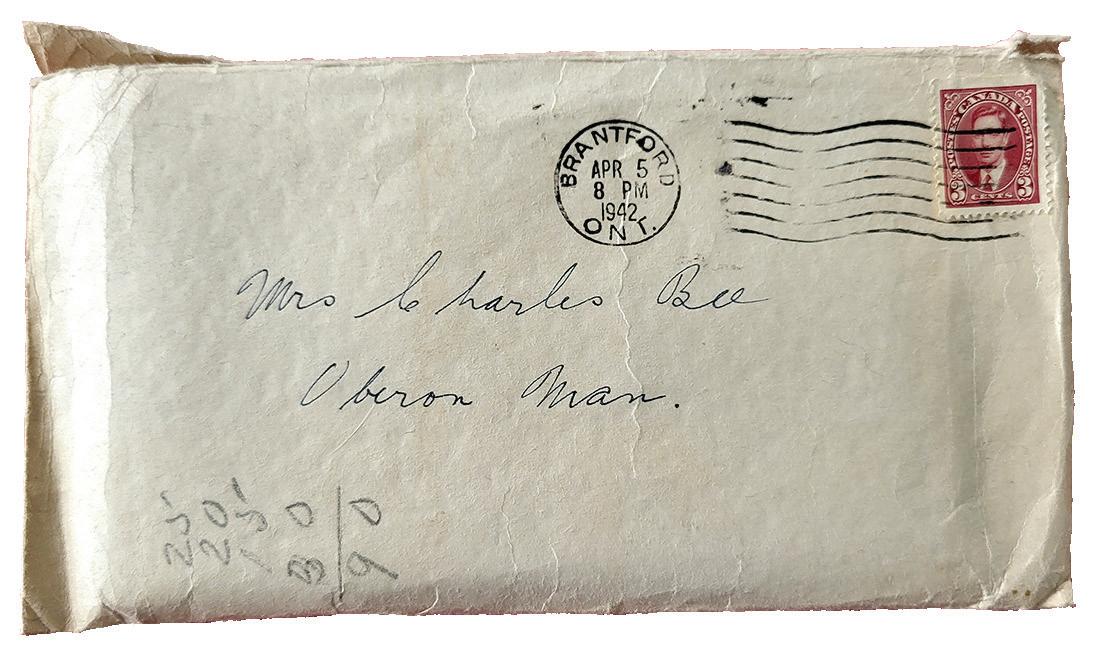 BRANTFORD
APR 5
8 PM
1942
ONT.
POSTES CANADA POSTAGE
3 CENTS 3
Mrs Charles Bee
Oberon Man.
25
20
15
30
90